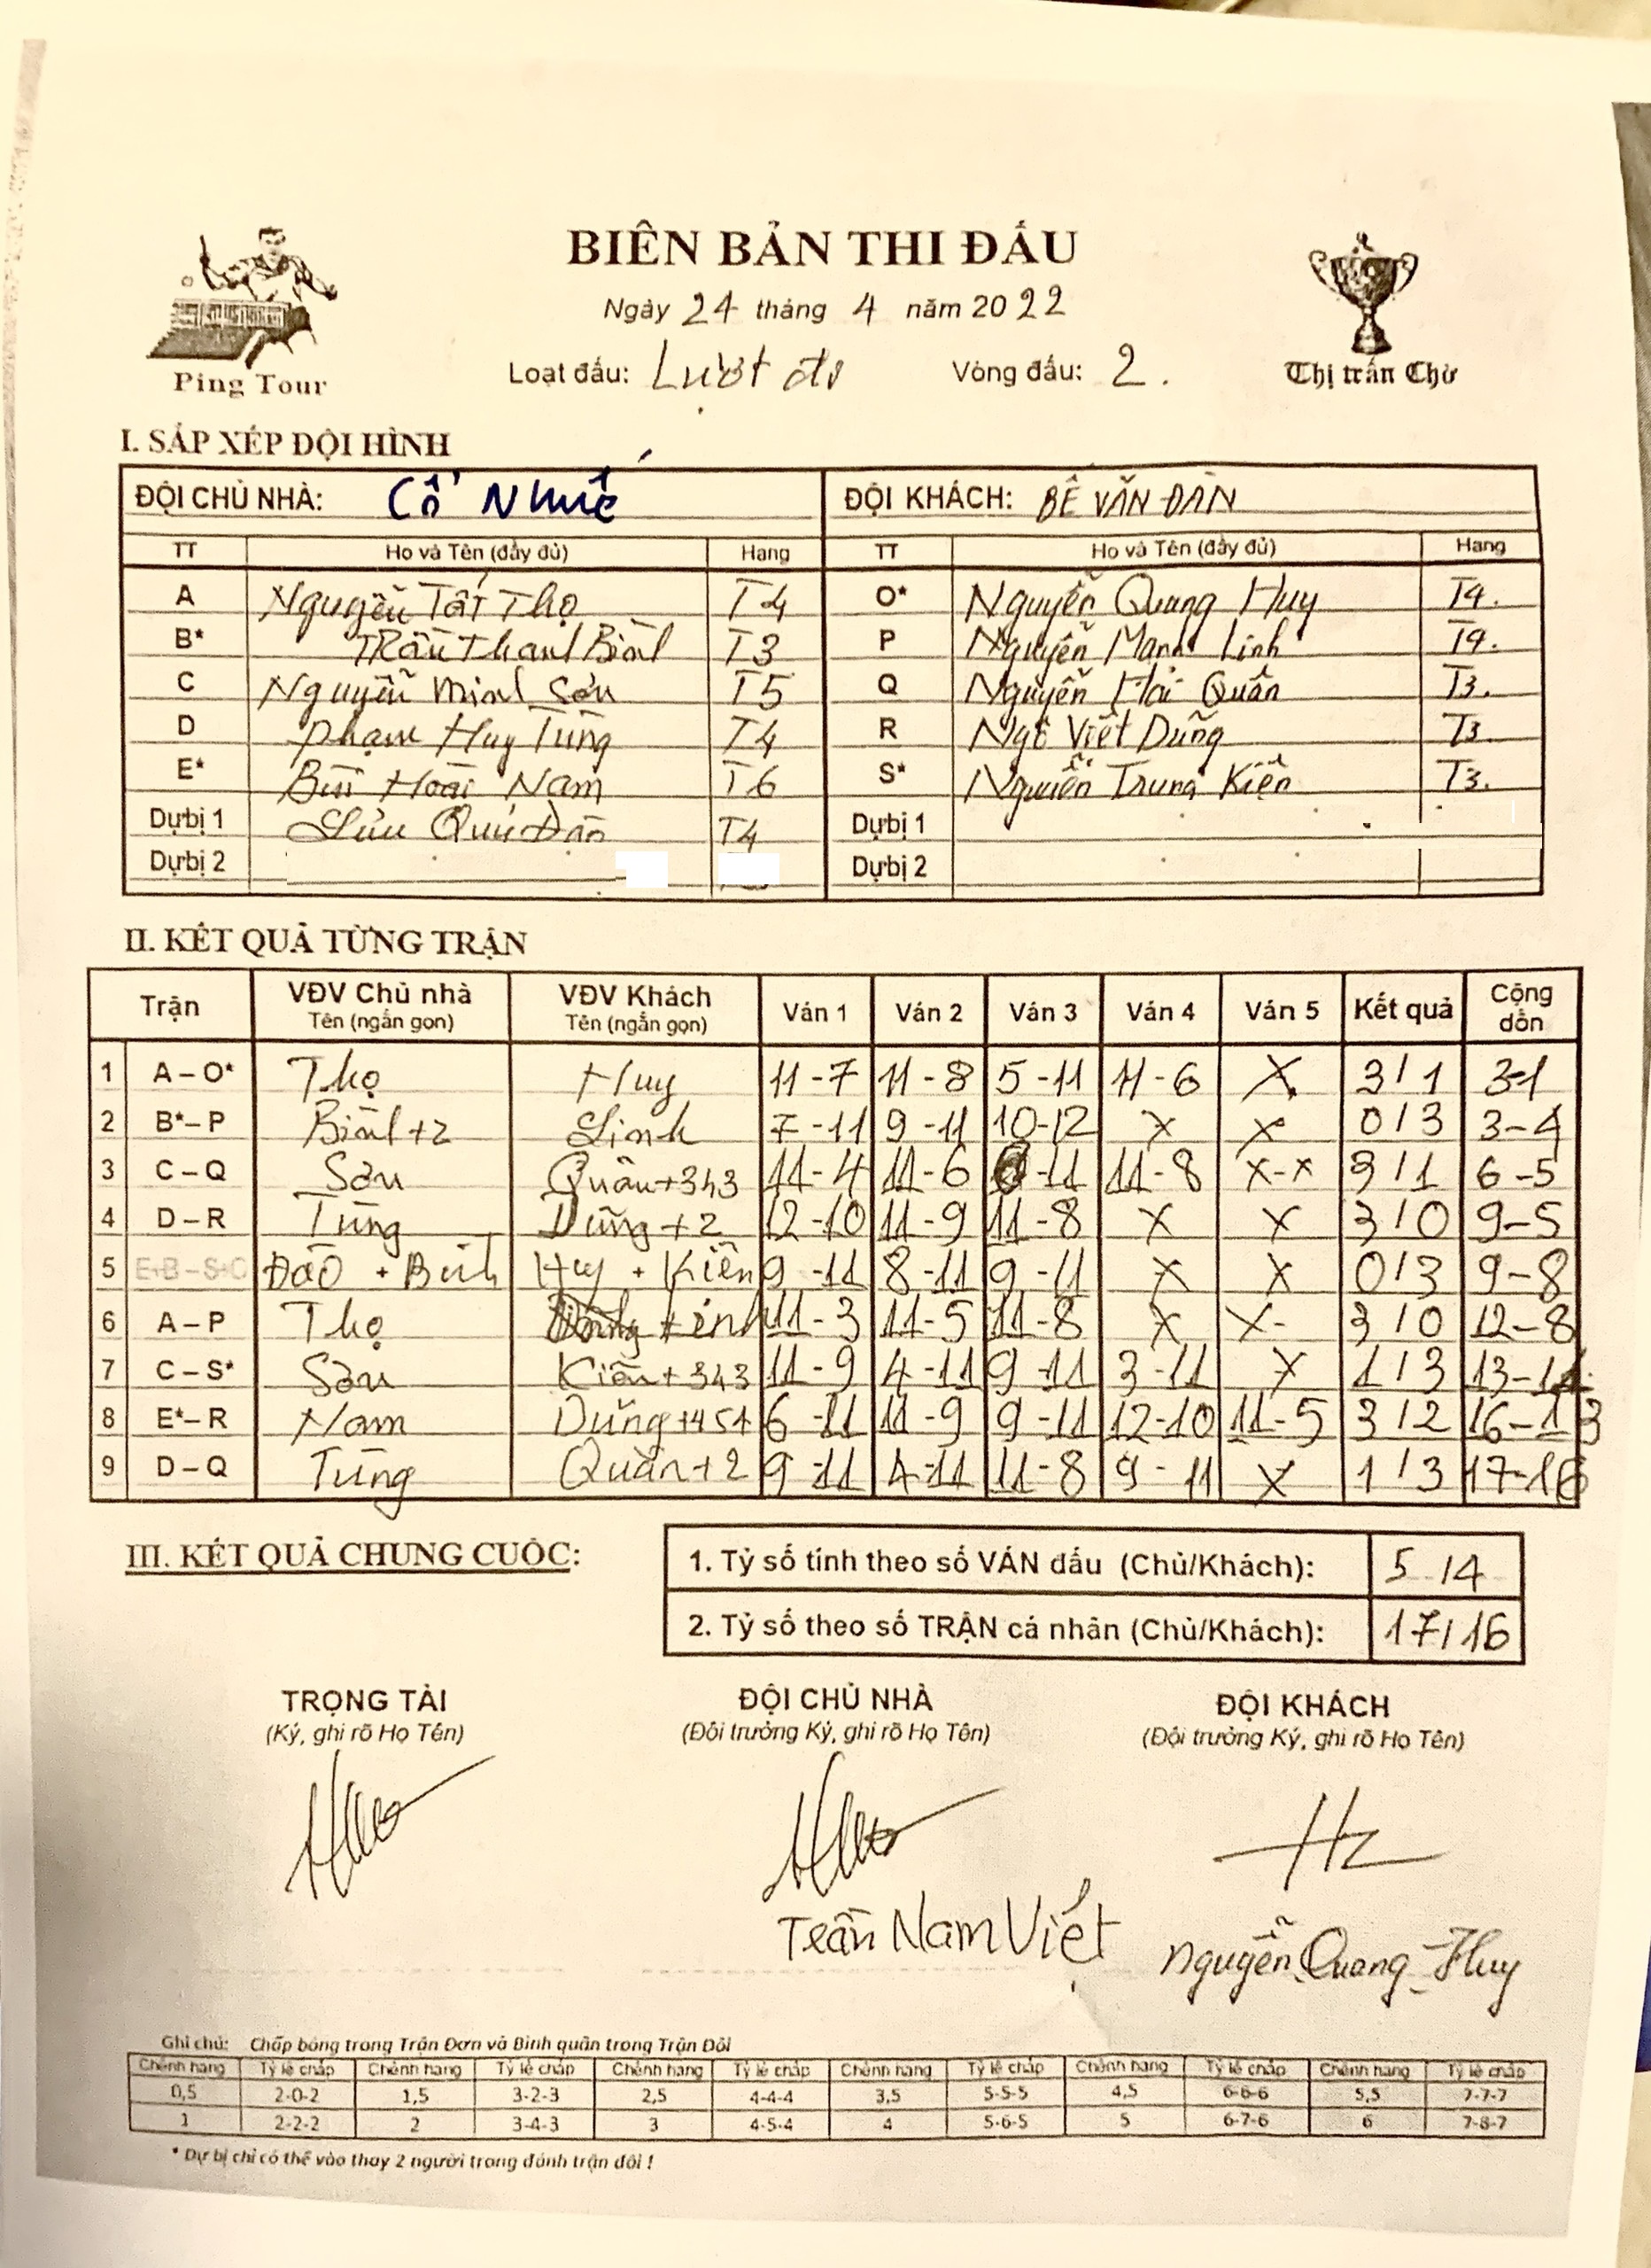 BIÊN BẢN THI ĐẤU
Ngày 24 tháng 4 năm 2022
Ping Tour
Loạt đấu: Lượt đi Vòng đấu: 2.
Thị trấn Chờ
I. SẮP XẾP ĐỘI HÌNH
ĐỘI CHỦ NHÀ: Cổ Nhuế ĐỘI KHÁCH: BẾ VĂN ĐÀN
TT Họ và Tên (đầy đủ) Hạng TT Họ và Tên (đầy đủ) Hạng
A Nguyễn Tất Thọ T4 O* Nguyễn Quang Huy T4.
B* Trần Thanh Bình T3 P Nguyễn Mạnh Linh T4.
C Nguyễn Minh Sơn T5 Q Nguyễn Hải Quân T3.
D Phạm Huy Tùng T4 R Ngô Viết Dũng T3.
E* Bùi Hoài Nam T6 S* Nguyễn Trung Kiên T3.
Dự bị 1 Lưu Quý Đào T4 Dự bị 1
Dự bị 2 Dự bị 2
II. KẾT QUẢ TỪNG TRẬN
Trận VĐV Chủ nhà Tên (ngắn gọn) VĐV Khách Tên (ngắn gọn) Ván 1 Ván 2 Ván 3 Ván 4 Ván 5 Kết quả Cộng dồn
1 A – O* Thọ Huy 11-7 11-8 5-11 11-6 X 3/1 3-1
2 B* – P Bình+2 Linh 7-11 9-11 10-12 X X 0/3 3-4
3 C – Q Sơn Quân+343 11-4 11-6 -11 11-8 X-X 3/1 6-5
4 D – R Tùng Dũng+2 12-10 11-9 11-8 X X 3/0 9-5
5 E+B – S+O Đào + Bình Huy + Kiên 9-11 8-11 9-11 X X 0/3 9-8
6 A – P Thọ Linh 11-3 11-5 11-8 X X- 3/0 12-8
7 C – S* Sơn Kiên+343 11-9 4-11 9-11 3-11 X 1/3 13-11
8 E* – R Nam Dũng+454 6-11 11-9 9-11 12-10 11-5 3/2 16-13
9 D – Q Tùng Quân+2 9-11 4-11 11-8 9-11 X 1/3 17-16
III. KẾT QUẢ CHUNG CUỘC:
1. Tỷ số tính theo số VÁN đấu (Chủ/Khách): 5/4
2. Tỷ số theo số TRẬN cá nhân (Chủ/Khách): 17/16
TRỌNG TÀI ĐỘI CHỦ NHÀ ĐỘI KHÁCH
(Ký, ghi rõ Họ Tên) (Đội trưởng Ký, ghi rõ Họ Tên) (Đội trưởng Ký, ghi rõ Họ Tên)
Trần Nam Việt Nguyễn Quang Huy
Ghi chú: Chấp bóng trong Trận Đơn và Bình quân trong Trận Đôi
Chênh hạng Tỷ lệ chấp Chênh hạng Tỷ lệ chấp Chênh hạng Tỷ lệ chấp Chênh hạng Tỷ lệ chấp Chênh hạng Tỷ lệ chấp Chênh hạng Tỷ lệ chấp
0,5 2-0-2 1,5 3-2-3 2,5 4-4-4 3,5 5-5-5 4,5 6-6-6 5,5 7-7-7
1 2-2-2 2 3-4-3 3 4-5-4 4 5-6-5 5 6-7-6 6 7-8-7
* Dự bị chỉ có thể vào thay 2 người trong đánh trận đôi !